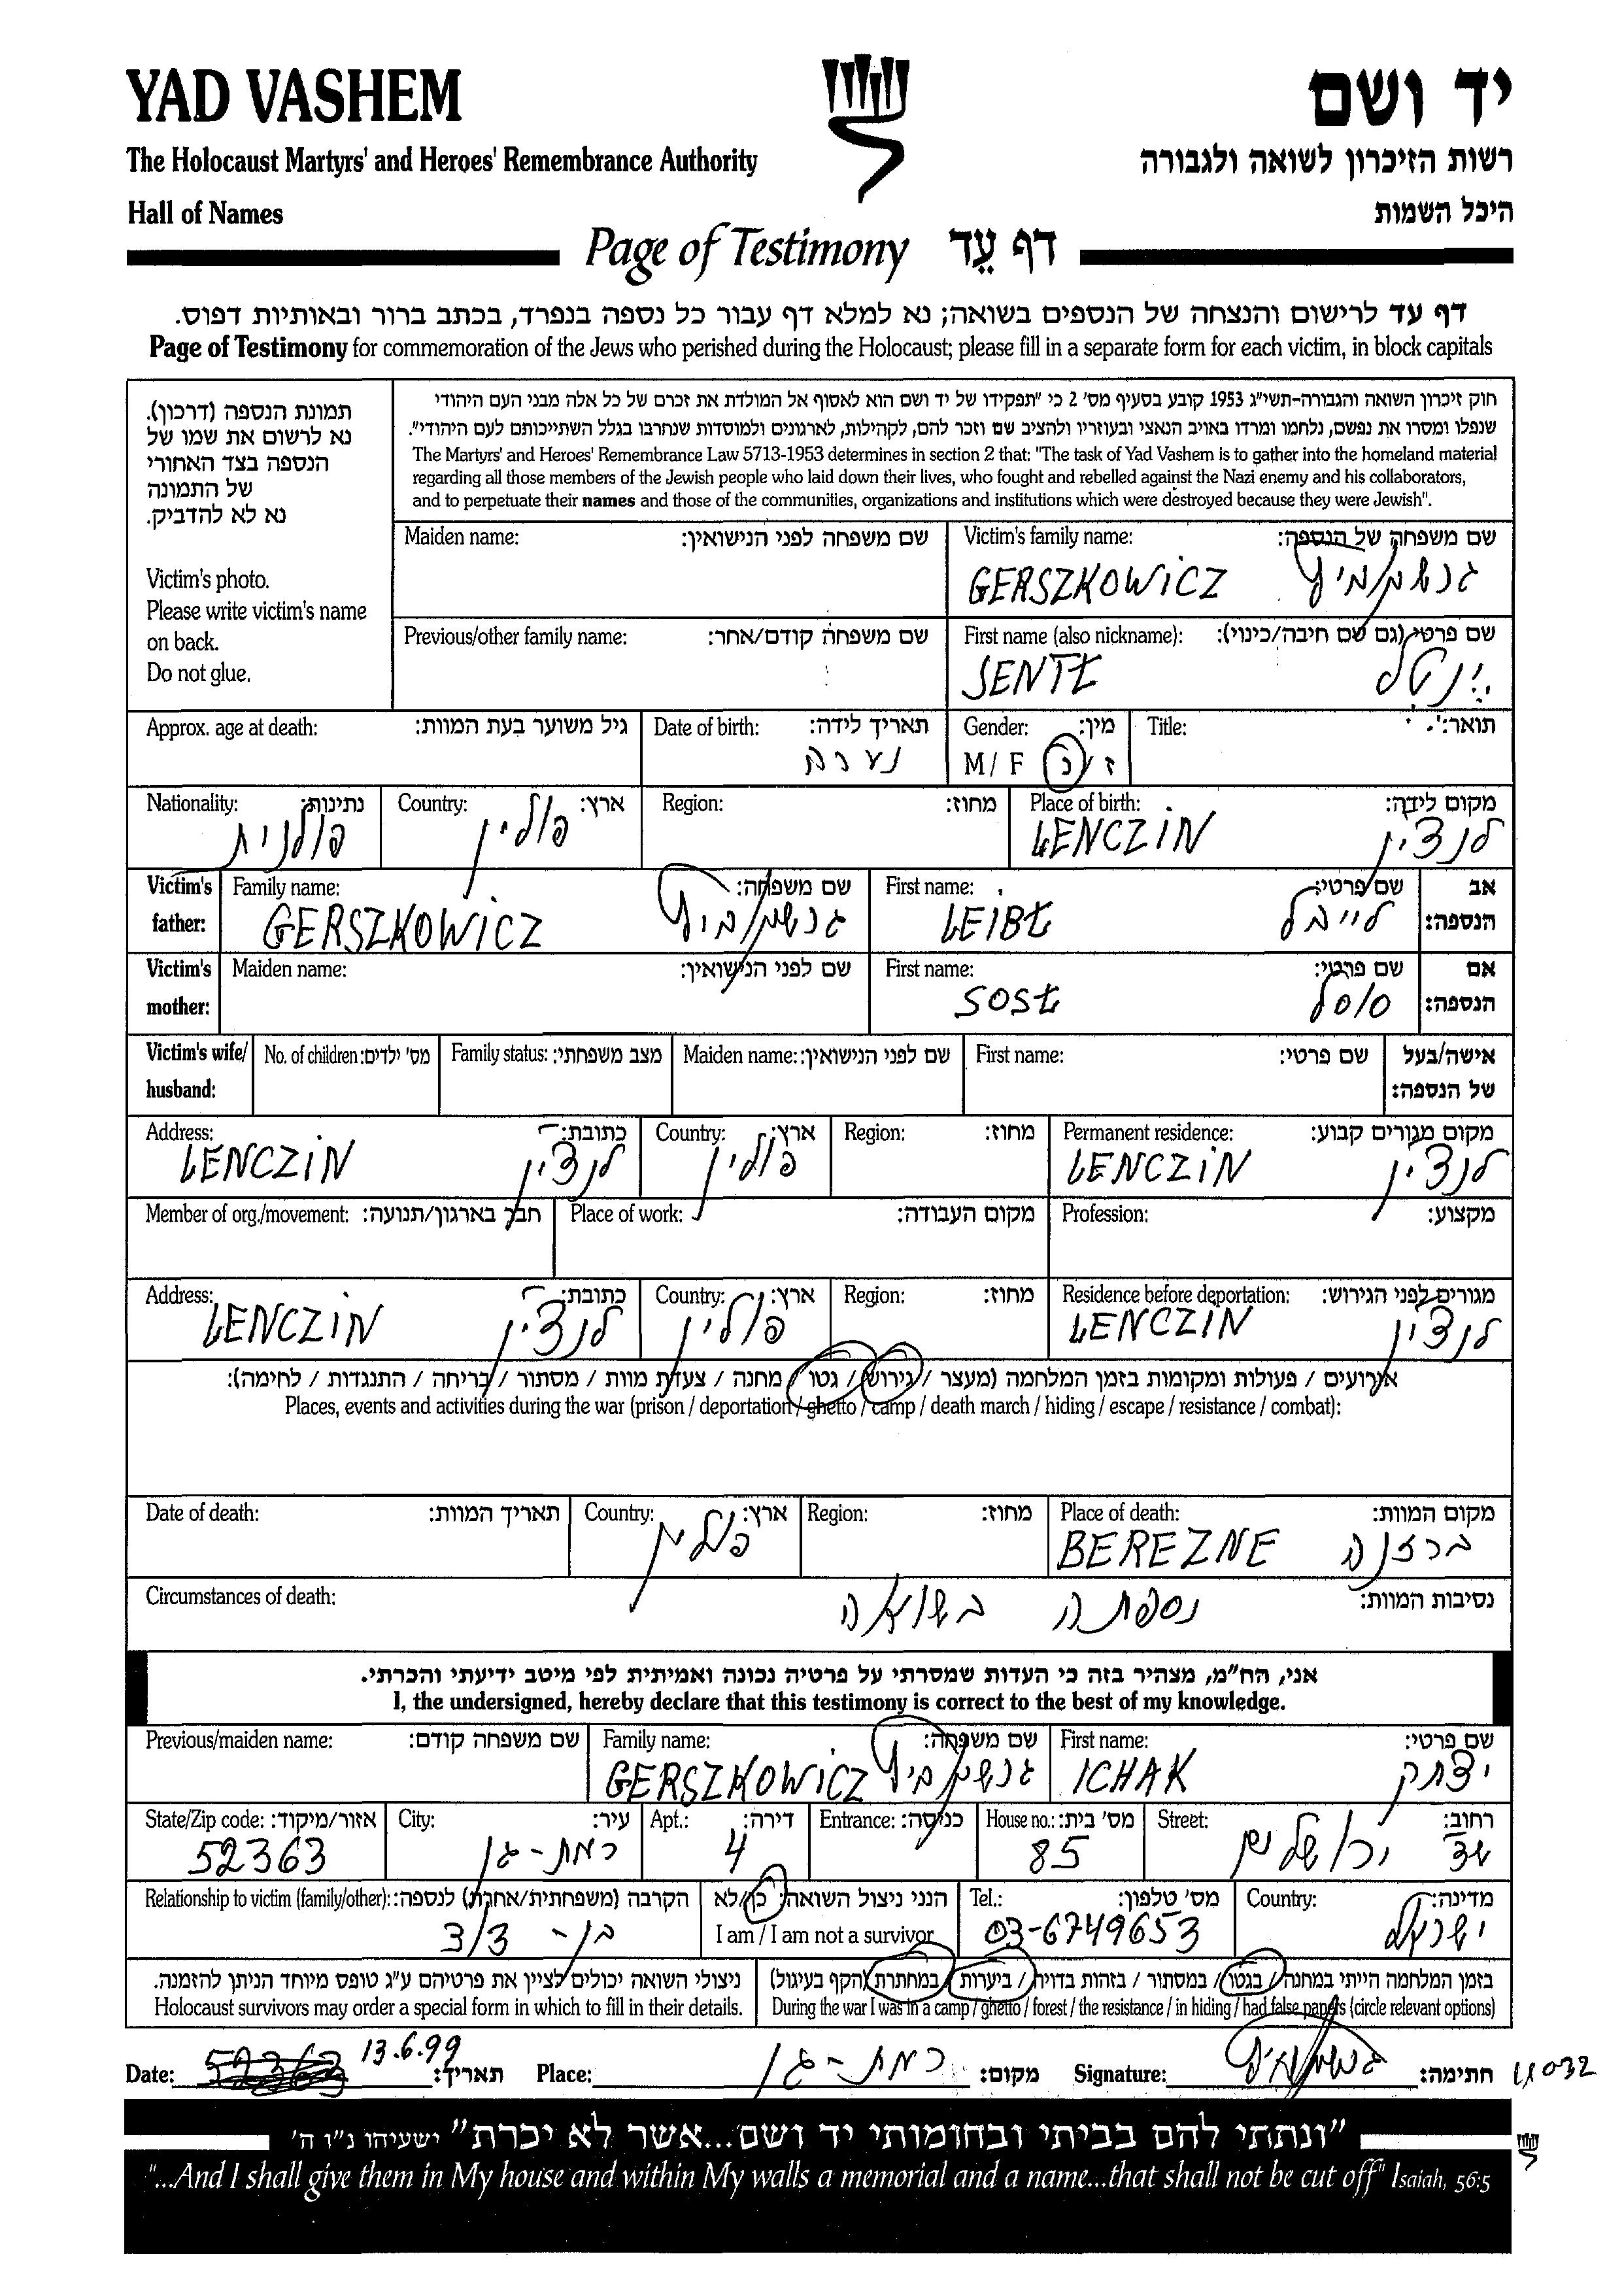 YAD VASHEM יד ושם
The Holocaust Martyrs' and Heroes' Remembrance Authority רשות הזיכרון לשואה ולגבורה
Hall of Names היכל השמות
Page of Testimony דף עֵד
דף עד לרישום והנצחה של הנספים בשואה; נא למלא דף עבור כל נספה בנפרד, בכתב ברור ובאותיות דפוס.
Page of Testimony for commemoration of the Jews who perished during the Holocaust; please fill in a separate form for each victim, in block capitals
תמונת הנספה (דרכון).
נא לרשום את שמו של
הנספה בצד האחורי
של התמונה
נא לא להדביק.
Victim's photo.
Please write victim's name
on back.
Do not glue.
חוק זיכרון השואה והגבורה-תשי"ג 1953 קובע בסעיף מס' 2 כי "תפקידו של יד ושם הוא לאסוף אל המולדת את זכרם של כל אלה מבני העם היהודי
שנפלו ומסרו את נפשם, נלחמו ומרדו באויב הנאצי ובעוזריו ולהציב שם וזכר להם, לקהילות, לארגונים ולמוסדות שנחרבו בגלל השתייכותם לעם היהודי".
The Martyrs' and Heroes' Remembrance Law 5713-1953 determines in section 2 that: "The task of Yad Vashem is to gather into the homeland material
regarding all those members of the Jewish people who laid down their lives, who fought and rebelled against the Nazi enemy and his collaborators,
and to perpetuate their names and those of the communities, organizations and institutions which were destroyed because they were Jewish".
Maiden name: שם משפחה לפני הנישואין: Victim's family name: שם משפחה של הנספה:
GERSZKOWICZ גרשקוביץ
Previous/other family name: שם משפחה קודם/אחר: First name (also nickname): שם פרטי (גם שם חיבה/כינוי):
SENTŁ
Approx. age at death: גיל משוער בעת המוות: Date of birth: תאריך לידה: Gender: מין: Title: תואר:
נערה M / F ז / נ
Nationality: נתינות: Country: ארץ: Region: מחוז: Place of birth: מקום לידה:
פולנית פולין ŁENCZIN לנצ'ין
Victim's father: Family name: שם משפחה: First name: שם פרטי: אב הנספה:
GERSZKOWICZ גרשקוביץ LEIBŁ לייבל
Victim's mother: Maiden name: שם לפני הנישואין: First name: שם פרטי: אם הנספה:
SOSŁ סוסל
Victim's wife/ husband: No. of children: מס' ילדים: Family status: מצב משפחתי: Maiden name: שם לפני הנישואין: First name: שם פרטי: אישה/בעל של הנספה:
Address: כתובת: Country: ארץ: Region: מחוז: Permanent residence: מקום מגורים קבוע:
ŁENCZIN לנצ'ין פולין ŁENCZIN לנצ'ין
Member of org./movement: חבר בארגון/תנועה: Place of work: מקום העבודה: Profession: מקצוע:
Address: כתובת: Country: ארץ: Region: מחוז: Residence before deportation: מגורים לפני הגירוש:
ŁENCZIN לנצ'ין פולין ŁENCZIN לנצ'ין
אירועים / פעולות ומקומות בזמן המלחמה (מעצר / גירוש / גטו / מחנה / צעדת מוות / מסתור / בריחה / התנגדות / לחימה):
Places, events and activities during the war (prison / deportation / ghetto / camp / death march / hiding / escape / resistance / combat):
Date of death: תאריך המוות: Country: ארץ: Region: מחוז: Place of death: מקום המוות:
פולין BEREZNE ברזנה
Circumstances of death: נסיבות המוות:
נספתה בשואה
אני, הח"מ, מצהיר בזה כי העדות שמסרתי על פרטיה נכונה ואמיתית לפי מיטב ידיעתי והכרתי.
I, the undersigned, hereby declare that this testimony is correct to the best of my knowledge.
Previous/maiden name: שם משפחה קודם: Family name: שם משפחה: First name: שם פרטי:
GERSZKOWICZ גרשקוביץ ICHAK יצחק
State/Zip code: אזור/מיקוד: City: עיר: Apt.: דירה: Entrance: כניסה: House no.: מס' בית: Street: רחוב:
52363 רמת-גן 4 85 שד ירושלים
Relationship to victim (family/other): הקרבה (משפחתית/אחרת) לנספה: הנני ניצול השואה: כן/לא Tel.: מס' טלפון: Country: מדינה:
בן-דוד I am / I am not a survivor 03-6749653 ישראל
ניצולי השואה יכולים לציין את פרטיהם ע"ג טופס מיוחד הניתן להזמנה. בזמן המלחמה הייתי במחנה / בגטו / במסתור / בזהות בדויה / ביערות / במחתרת (הקף בעיגול)
Holocaust survivors may order a special form in which to fill in their details. During the war I was in a camp / ghetto / forest / the resistance / in hiding / had false papers (circle relevant options)
Date: 52363 13.6.99 תאריך: Place: רמת-גן מקום: Signature: גרשקוביץ חתימה:
"ונתתי להם בביתי ובחומותי יד ושם...אשר לא יכרת" ישעיהו נ"ו ה'
"...And I shall give them in My house and within My walls a memorial and a name...that shall not be cut off" Isaiah, 56:5